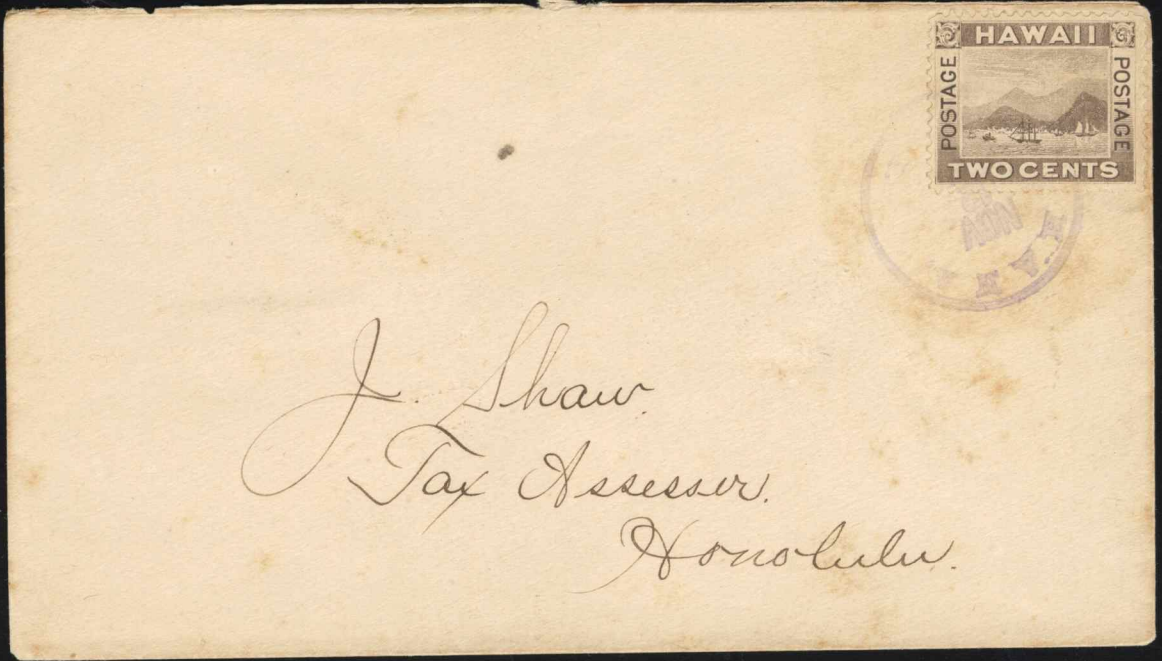 HAWAII
POSTAGE
POSTAGE
TWO CENTS
J. Shaw.
Tax Assessor.
Honolulu.